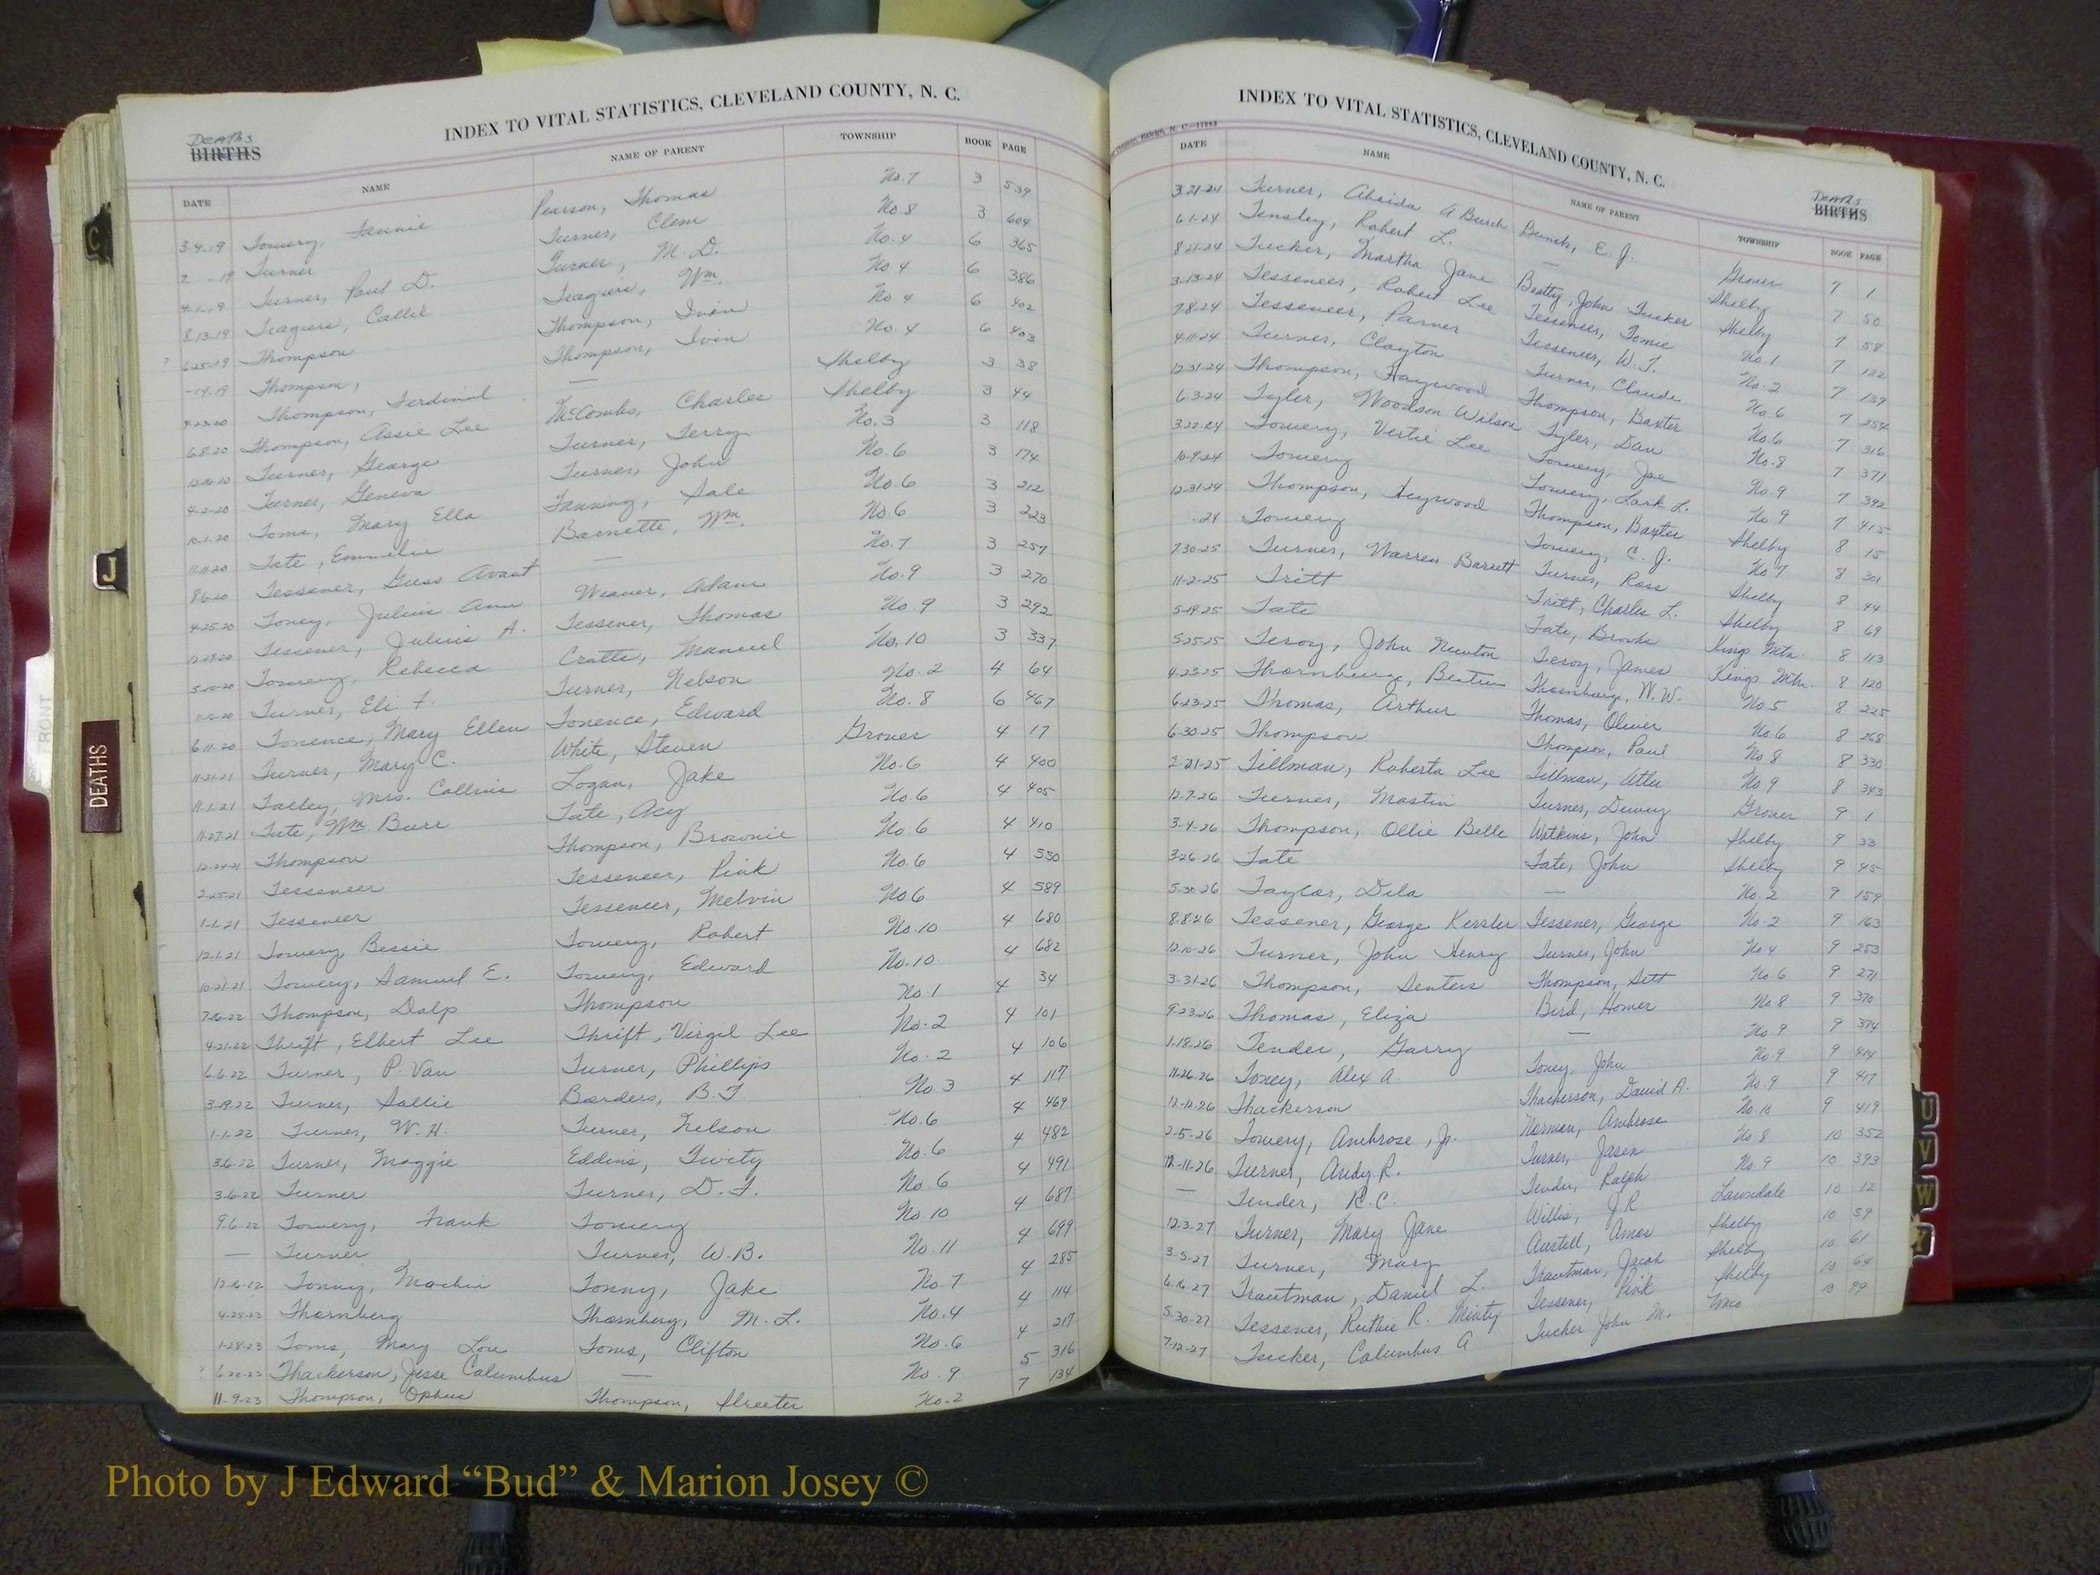 INDEX TO VITAL STATISTICS, CLEVELAND COUNTY, N. C.
Deaths
BIRTHS
DATE NAME NAME OF PARENT TOWNSHIP BOOK PAGE
3-4-19 Towery, Fannie Pearson, Thomas No. 7 3 539
2 - -19 Turner Turner, Clem No. 8 3 604
4-1-19 Turner, Paul D. Turner, M. D. No. 4 6 365
8-13-19 Tragure, Callie Tragure, Wm. No 4 6 386
? 6-25-19 Thompson Thompson, Ivin No 4 6 402
-14-19 Thompson, Thompson, Ivin No. 4 6 403
4-23-20 Thompson, Ferdinil — Shelby 3 38
6-8-20 Thompson, Assie Lee McCombs, Charles Shelby 3 44
Turner, George Turner, Terry No. 3 3 118
4-2-20 Turner, Geneva Turner, John No. 6 3 174
10-1-20 Toms, Mary Ella Fanning, Sale No. 6 3 212
11-11-20 Tate, Emmelin Barnette, Wm. No 6 3 223
8-6-20 Tessener, Guss Avant — No. 7 3 257
4-25-20 Toney, Julius Ann Weaver, Adam No. 9 3 270
12-19-20 Tessener, Julius A. Tessener, Thomas No 9 3 292
5-10-20 Towery, Rebecca Cratts, Manuel No. 10 3 337
Turner, Eli F. Turner, Nelson No. 2 4 64
6-11-20 Torrence, Mary Ellen Torrence, Edward No. 8 6 467
11-21-21 Turner, Mary C. White, Steven Grover 4 17
11-1-21 Talley, Mrs. Collins Logan, Jake No. 6 4 400
11-27-21 Tate, Wm. Burr Tate, Acy No. 6 4 405
12-24-21 Thompson Thompson, Brownie No. 6 4 410
2-25-21 Tesseneer Tesseneer, Pink No. 6 4 550
1-1-21 Tesseneer Tesseneer, Melvin No 6 4 589
12-1-21 Towery, Bessie Towery, Robert No. 10 4 680
10-21-21 Towery, Samuel E. Towery, Edward No. 10 4 682
7-16-22 Thompson, Dalp Thompson No. 1 4 34
4-21-22 Thrift, Elbert Lee Thrift, Virgil Lee No. 2 4 101
6-6-22 Turner, P. Van Turner, Phillips No. 2 4 106
3-19-22 Turner, Sallie Borders, B. F. No. 3 4 117
1-1-22 Turner, W. H. Turner, Nelson No. 6 4 469
3-6-22 Turner, Maggie Eddins, Twity No. 6 4 482
3-6-22 Turner Turner, D. F. No. 6 4 491
9-6-22 Towery, Frank Towery No. 10 4 687
— Turner Turner, W. B. No. 11 4 699
12-16-22 Tonny, Tonny, Jake No. 7 4 285
4-25-23 Thornberg Thornberg, M. L. No. 4 4 114
1-28-23 Toms, Mary Lou Toms, Clifton No. 6 4 217
? 6-22-23 Thackerson, Jesse Columbus — No. 9 5 316
11-9-23 Thompson, Ophus Thompson, Streeter No. 2 7 134
INDEX TO VITAL STATISTICS, CLEVELAND COUNTY, N. C.
Deaths
BIRTHS
DATE NAME NAME OF PARENT TOWNSHIP BOOK PAGE
3-21-24 Turner, A Burch Bunch, E. J. Grover 7 1
6-1-24 Tensley, Robert L. — Shelby 7 50
8-21-24 Tucker, Martha Jane Beatty, John Tucker Shelby 7 58
3-13-24 Tesseneer, Robert Lee Tesseneer, Tomie No 1 7 122
7-8-24 Tesseneer, Parner Tesseneer, W. T. No. 2 7 139
4-11-24 Turner, Clayton Turner, Claude No. 6 7 254
12-31-24 Thompson, Haywood Thompson, Baxter No. 6 7 316
6-3-24 Tyler, Woodson Wilson Tyler, Dan No. 8 7 371
3-22-24 Towery, Vertie Lee Towery, Joe No. 9 7 392
10-9-24 Towery Towery, Lark L. No. 9 7 415
12-31-24 Thompson, Heywood Thompson, Baxter Shelby 8 15
.24 Towery Towery, C. J. No. 7 8 301
7-30-25 Turner, Warren Barrett Turner, Ross Shelby 8 44
11-2-25 Tritt Tritt, Charles L. Shelby 8 69
5-19-25 Tate Tate, Brooks Kings Mtn. 8 113
5-25-25 Teroy, John Newton Teroy, James Kings Mtn. 8 120
4-23-25 Thornburg, Beatrice Thornburg, W. W. No 5 8 225
6-23-25 Thomas, Arthur Thomas, Oliver No. 6 8 268
6-30-25 Thompson Thompson, Paul No. 8 8 330
2-21-25 Tillman, Roberta Lee Tillman, Utler No 9 8 343
12-7-26 Turner, Mastin Turner, Dewey Grover 9 1
3-4-26 Thompson, Ollie Belle Watkins, John Shelby 9 33
3-26-26 Tate Tate, John Shelby 9 45
5-30-26 Taylor, Dila — No. 2 9 159
8-8-26 Tessener, George Kessler Tessener, George No. 2 9 163
12-10-26 Turner, John Henry Turner, John No 4 9 253
3-31-26 Thompson, Senters Thompson, Sett No 6 9 271
9-23-26 Thomas, Eliza Bird, Homer No 8 9 370
1-18-26 Tender, Garry — No. 8 9 374
11-26-26 Toney, Alex A. Toney, John No 9 9 414
12-12-26 Thackerson Thackerson, David A. No. 9 9 417
2-5-26 Towery, Ambrose, Jr. Norman, Ambrose No. 10 9 419
12-11-26 Turner, Andy R. Turner, Jasen No 8 10 352
— Tender, R. C. Tender, Ralph No. 9 10 393
12-3-27 Turner, Mary Jane Willis, J R Lawndale 10 12
3-5-27 Turner, Mary Austell, Amos Shelby 10 59
6-16-27 Trautman, Daniel L. Trautman, Jacob Shelby 10 61
5-30-27 Tessener, Ruthie R. Minty Tessener, Pink Shelby 10 64
7-12-27 Tucker, Columbus A Tucker John M. Waco 10 99
C
J
DEATHS
FRONT
U
V
W
Y
Photo by J Edward “Bud” & Marion Josey ©